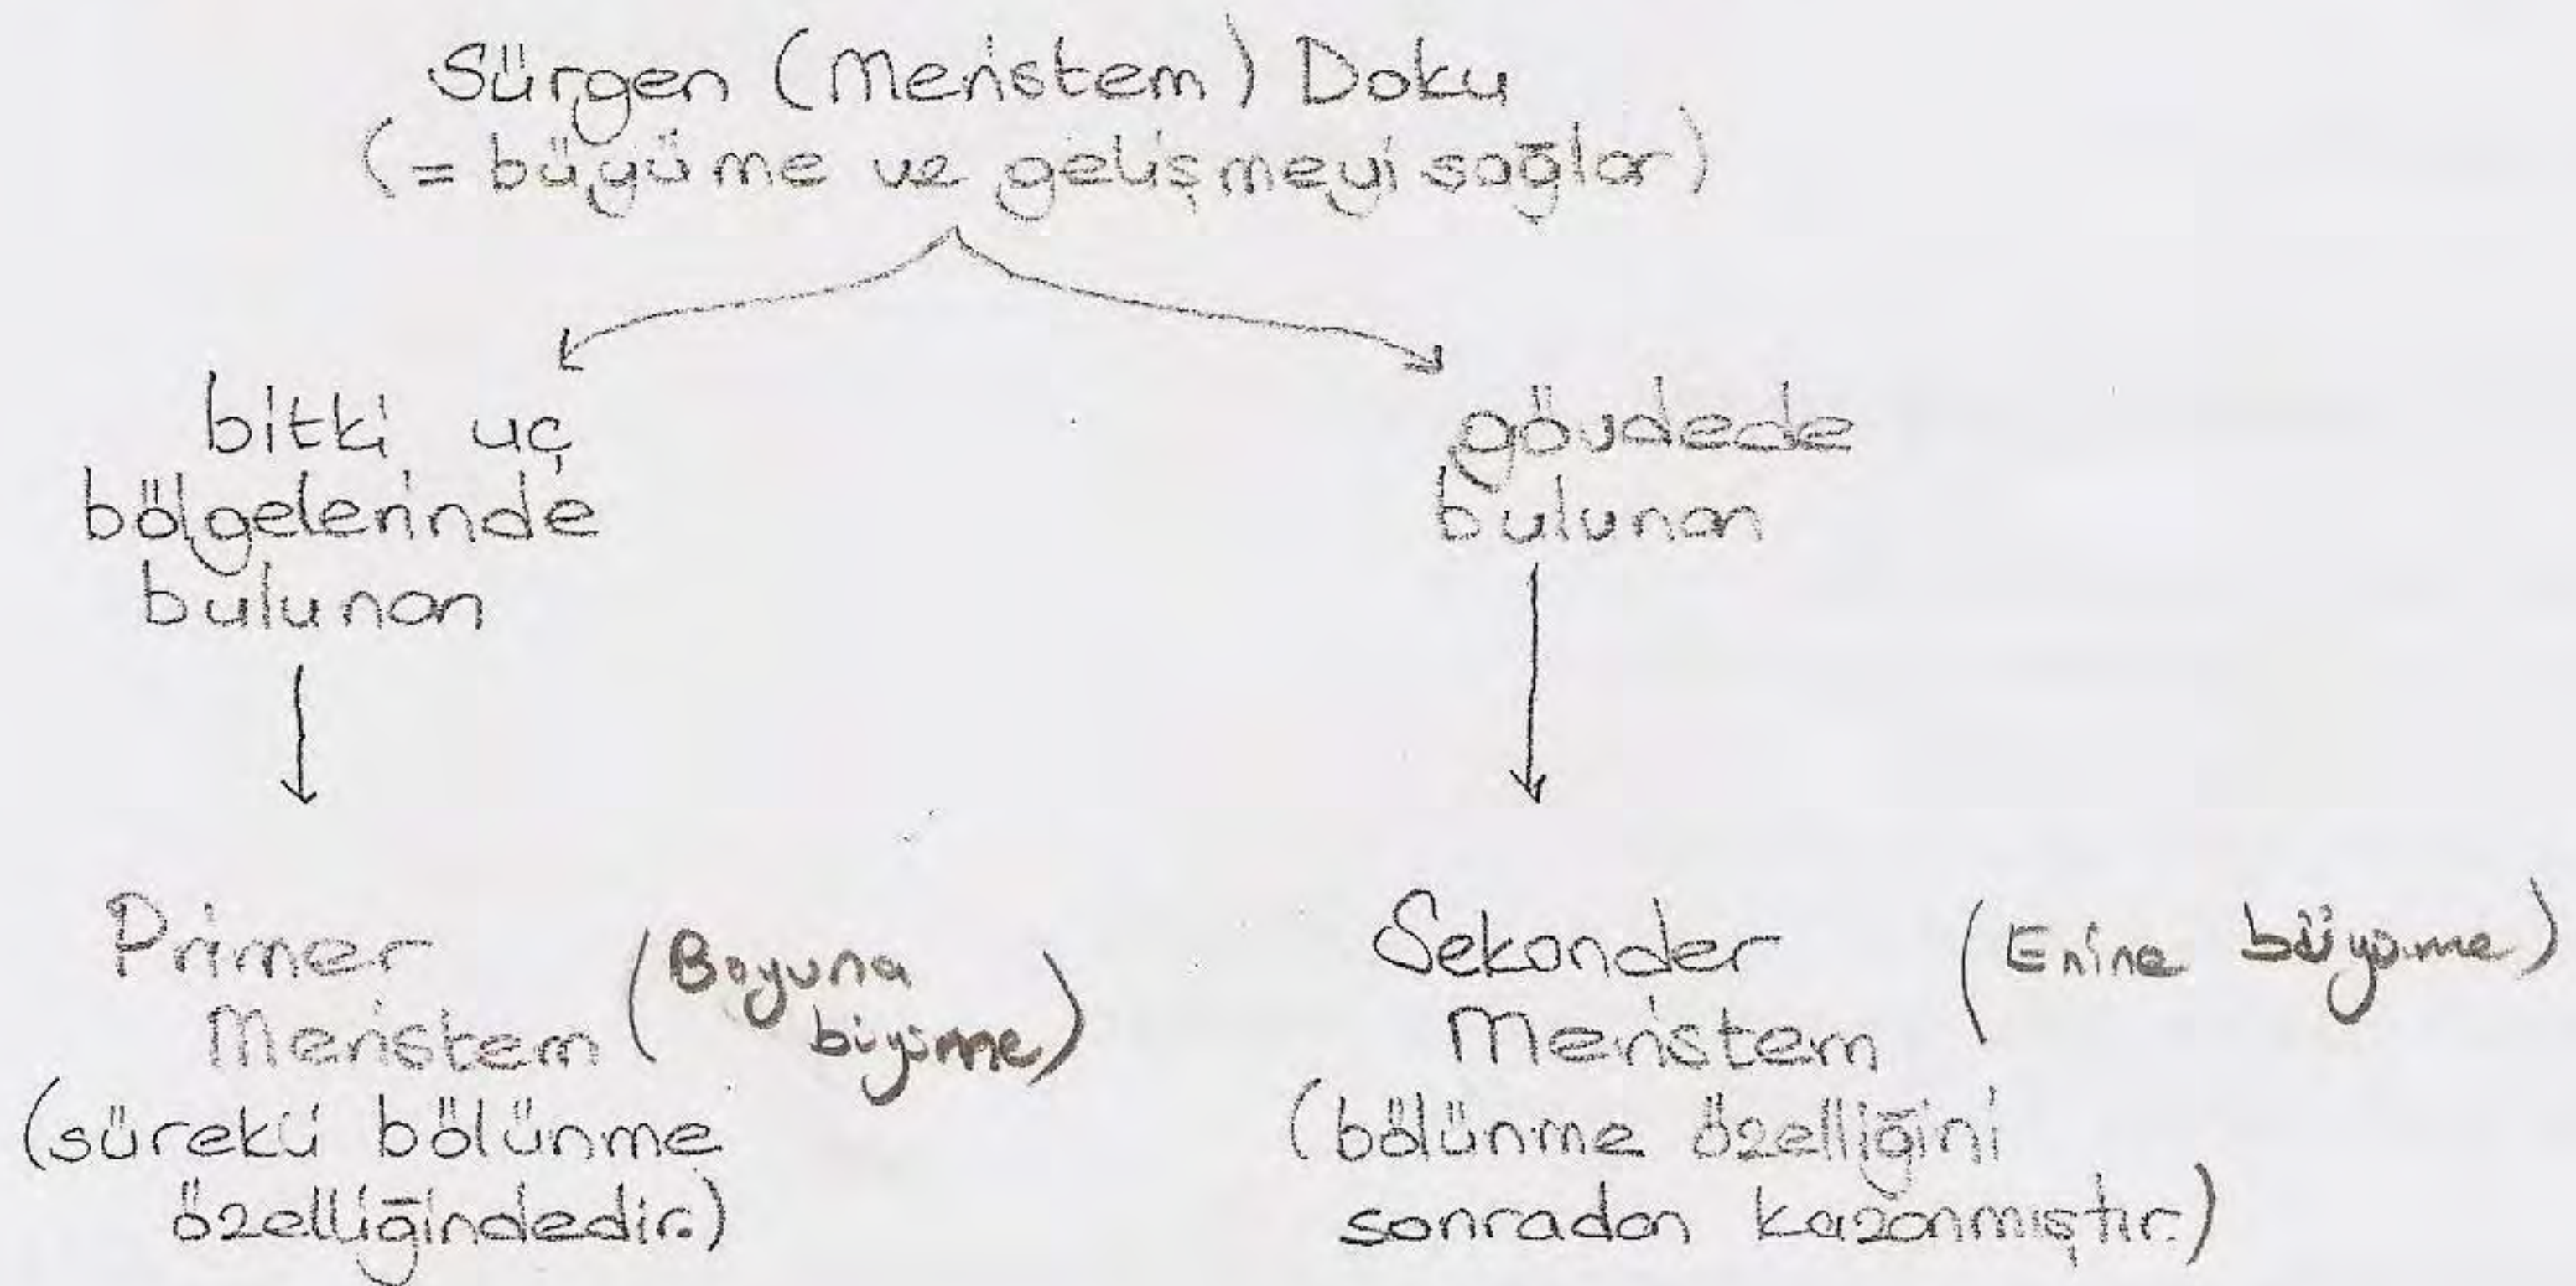 Sürgen (Meristem) Doku
(= büyüme ve gelişmeyi sağlar)
bitki uç
bölgelerinde
bulunan
gövdede
bulunan
Primer
Meristem
(Boyuna
büyüme)
(sürekli bölünme
özelliğindedir.)
Sekonder
Meristem
(Enine büyüme)
(bölünme özelliğini
sonradan kazanmıştır.)